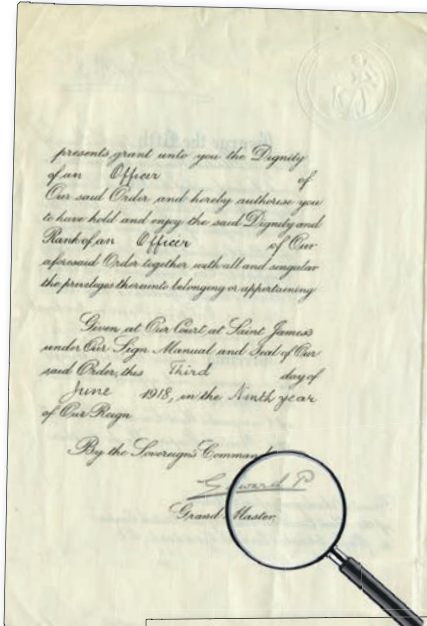 presents grant unto you the Dignity
of an Officer of
Our said Order and hereby authorise you
to have hold and enjoy the said Dignity and
Rank of an Officer of Our
aforesaid Order together with all and singular
the privileges thereunto belonging or appertaining
Given at Our Court at Saint James's
under Our Sign Manual and Seal of Our
said Order, this Third day of
June 1918, in the Ninth year
of Our Reign
By the Sovereign's Command
Edward P
Grand Master